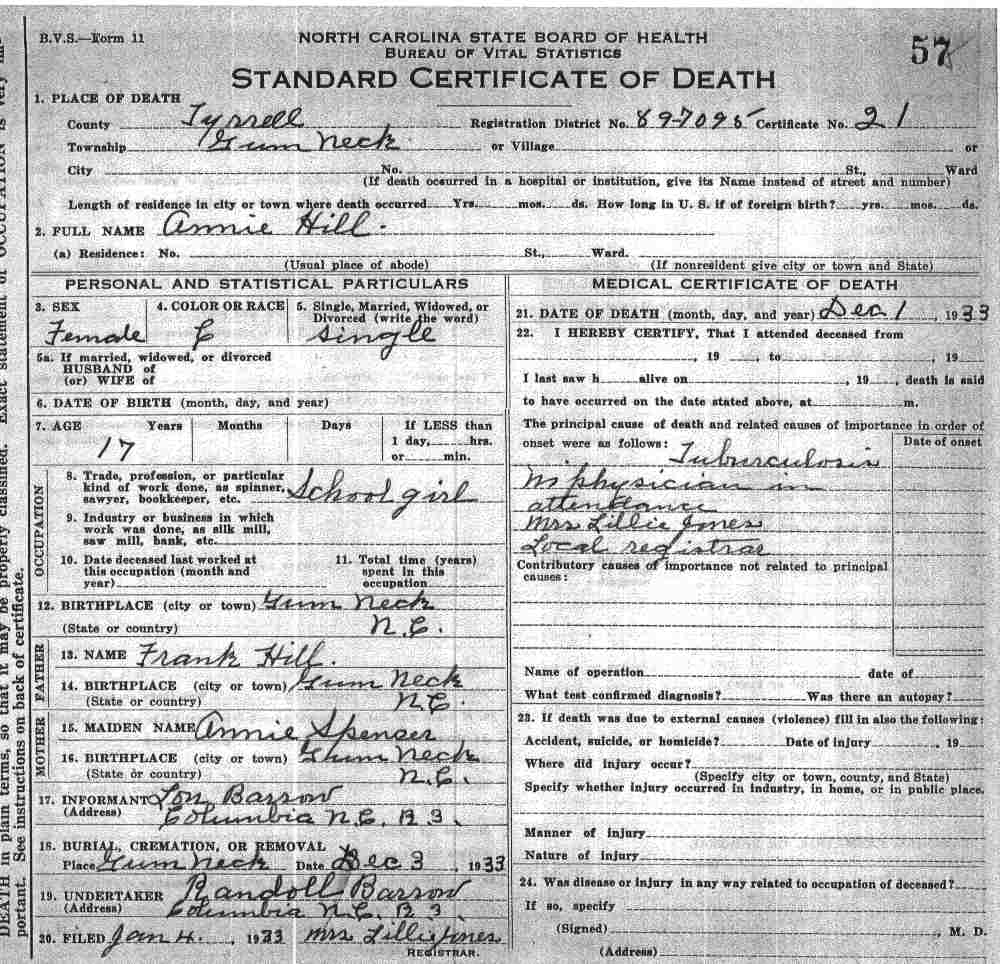 B.V.S.—Form 11
NORTH CAROLINA STATE BOARD OF HEALTH
BUREAU OF VITAL STATISTICS
57
STANDARD CERTIFICATE OF DEATH
1. PLACE OF DEATH
County Tyrrell Registration District No. 89-7095 Certificate No. 21
Township Gum Neck or Village or
City No. St., Ward
(If death occurred in a hospital or institution, give its Name instead of street and number)
Length of residence in city or town where death occurred Yrs. mos. ds. How long in U. S. if of foreign birth? yrs. mos. ds.
2. FULL NAME Annie Hill.
(a) Residence: No. St., Ward.
(Usual place of abode) (If nonresident give city or town and State)
PERSONAL AND STATISTICAL PARTICULARS
3. SEX 4. COLOR OR RACE 5. Single, Married, Widowed, or
Divorced (write the word)
Female C single
5a. If married, widowed, or divorced
HUSBAND of
(or) WIFE of
6. DATE OF BIRTH (month, day, and year)
7. AGE Years Months Days If LESS than
17 1 day, hrs.
or min.
OCCUPATION
8. Trade, profession, or particular
kind of work done, as spinner,
sawyer, bookkeeper, etc. School girl
9. Industry or business in which
work was done, as silk mill,
saw mill, bank, etc.
10. Date deceased last worked at
this occupation (month and
year)
11. Total time (years)
spent in this
occupation
12. BIRTHPLACE (city or town) Gum Neck
(State or country) N.C.
FATHER
13. NAME Frank Hill.
14. BIRTHPLACE (city or town) Gum Neck
(State or country) N.C.
MOTHER
15. MAIDEN NAME Annie Spenser
16. BIRTHPLACE (city or town) Gum Neck
(State or country) N.C.
17. INFORMANT Lon Barrow
(Address) Columbia N.C. R 3.
18. BURIAL, CREMATION, OR REMOVAL
Place Gum Neck Date Dec 3, 1933
19. UNDERTAKER Randoll Barrow
(Address) Columbia N.C. R 3
20. FILED Jan 4., 1933 Mrs Lillie Jones
REGISTRAR.
MEDICAL CERTIFICATE OF DEATH
21. DATE OF DEATH (month, day, and year) Dec 1, 1933
22. I HEREBY CERTIFY, That I attended deceased from
, 19 , to , 19
I last saw h alive on , 19 , death is said
to have occurred on the date stated above, at m.
The principal cause of death and related causes of importance in order of
onset were as follows: Date of onset
Tuburculosis
No physician in
attendance
Mrs Lillie Jones
Local registrar
Contributory causes of importance not related to principal
causes:
Name of operation date of
What test confirmed diagnosis? Was there an autopsy?
23. If death was due to external causes (violence) fill in also the following:
Accident, suicide, or homicide? Date of injury , 19
Where did injury occur?
(Specify city or town, county, and State)
Specify whether injury occurred in industry, in home, or in public place.
Manner of injury
Nature of injury
24. Was disease or injury in any way related to occupation of deceased?
If so, specify
(Signed) , M. D.
(Address)
DEATH in plain terms, so that it may be properly classified. Exact statement of OCCUPATION is very im-
portant. See instructions on back of certificate.